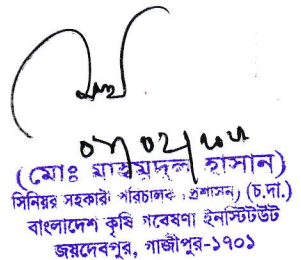 (মোঃ মাহমুদুল হাসান)
সিনিয়র সহকারী পরিচালক (প্রশাসন) (চ.দা.)
বাংলাদেশ কৃষি গবেষণা ইনস্টিটিউট
জয়দেবপুর, গাজীপুর-১৭০১